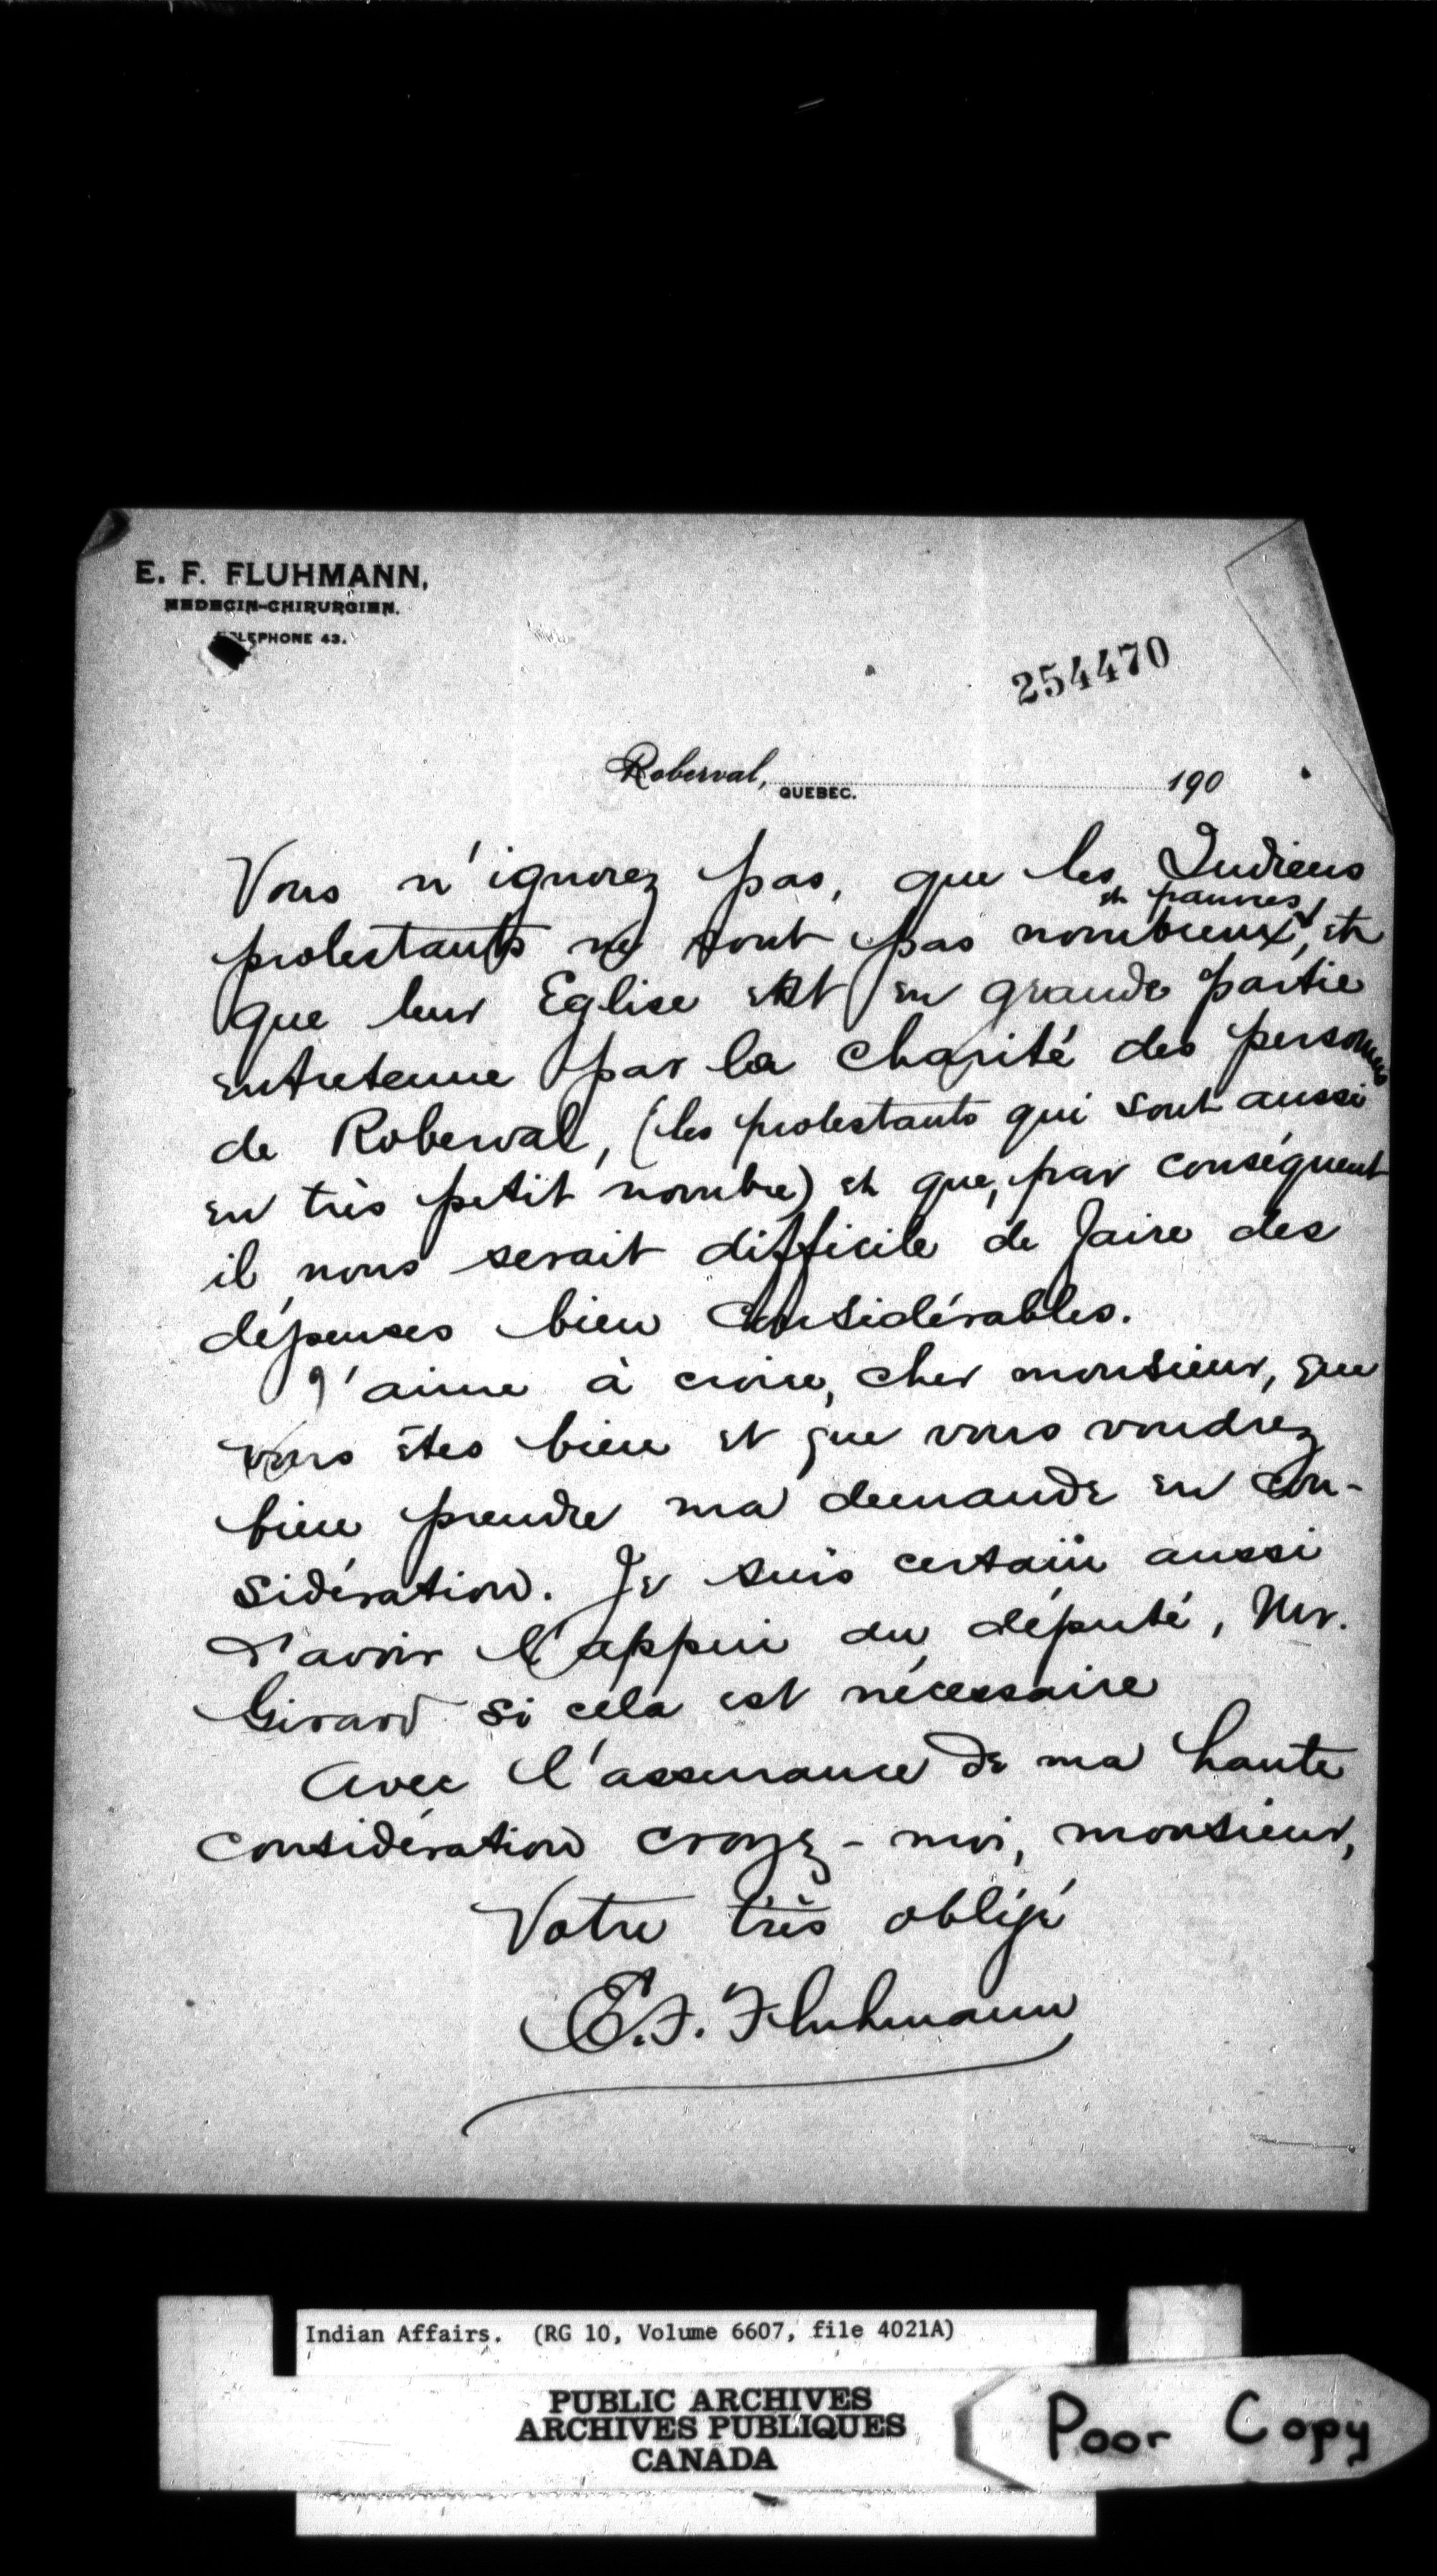 E. F. FLUHMANN,
MEDECIN-CHIRURGIEN.
TELEPHONE 43.
254470
Roberval, QUEBEC. 190
Vous n'ignorez pas, que les Indiens
et pauvres
protestants ne sont pas nombreux, et
que leur Eglise est en grande partie
entretenue par la charité des personnes
de Roberval, (les protestants qui sont aussi
en très petit nombre) et que, par conséquent
il nous serait difficile de faire des
dépenses bien considérables.
J'aime à croire, cher monsieur, que
vous êtes bien et que vous voudrez
bien prendre ma demande en con-
sidération. Je suis certain aussi
d'avoir l'appui du député, Mr.
Girard si cela est nécessaire
Avec l'assurance de ma haute
considération croyez-moi, monsieur,
Votre très obligé
E. F. Fluhmann
Indian Affairs. (RG 10, Volume 6607, file 4021A)
PUBLIC ARCHIVES
ARCHIVES PUBLIQUES
CANADA
Poor Copy